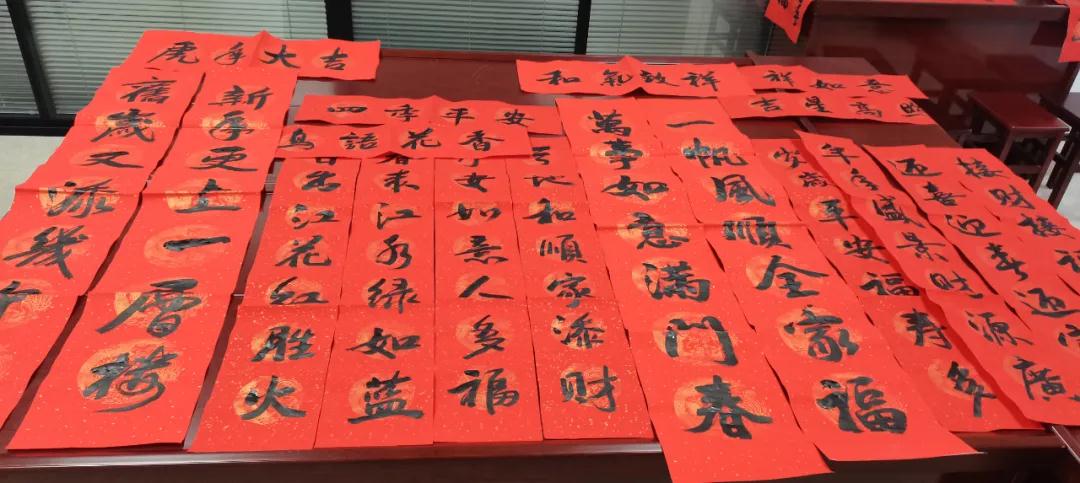 虎年大吉
和氣致祥
祥如意
四季平安
吉星高照
鸟語花香
舊歲又添幾
新年更上一層楼
日出江花红胜火
春来江水绿如蓝
如意人多福
地和順家添财
萬事如意滿門春
一帆風順全家福
岁岁平安福寿多
年年盛景财源廣
迎喜迎春迎
接财接福